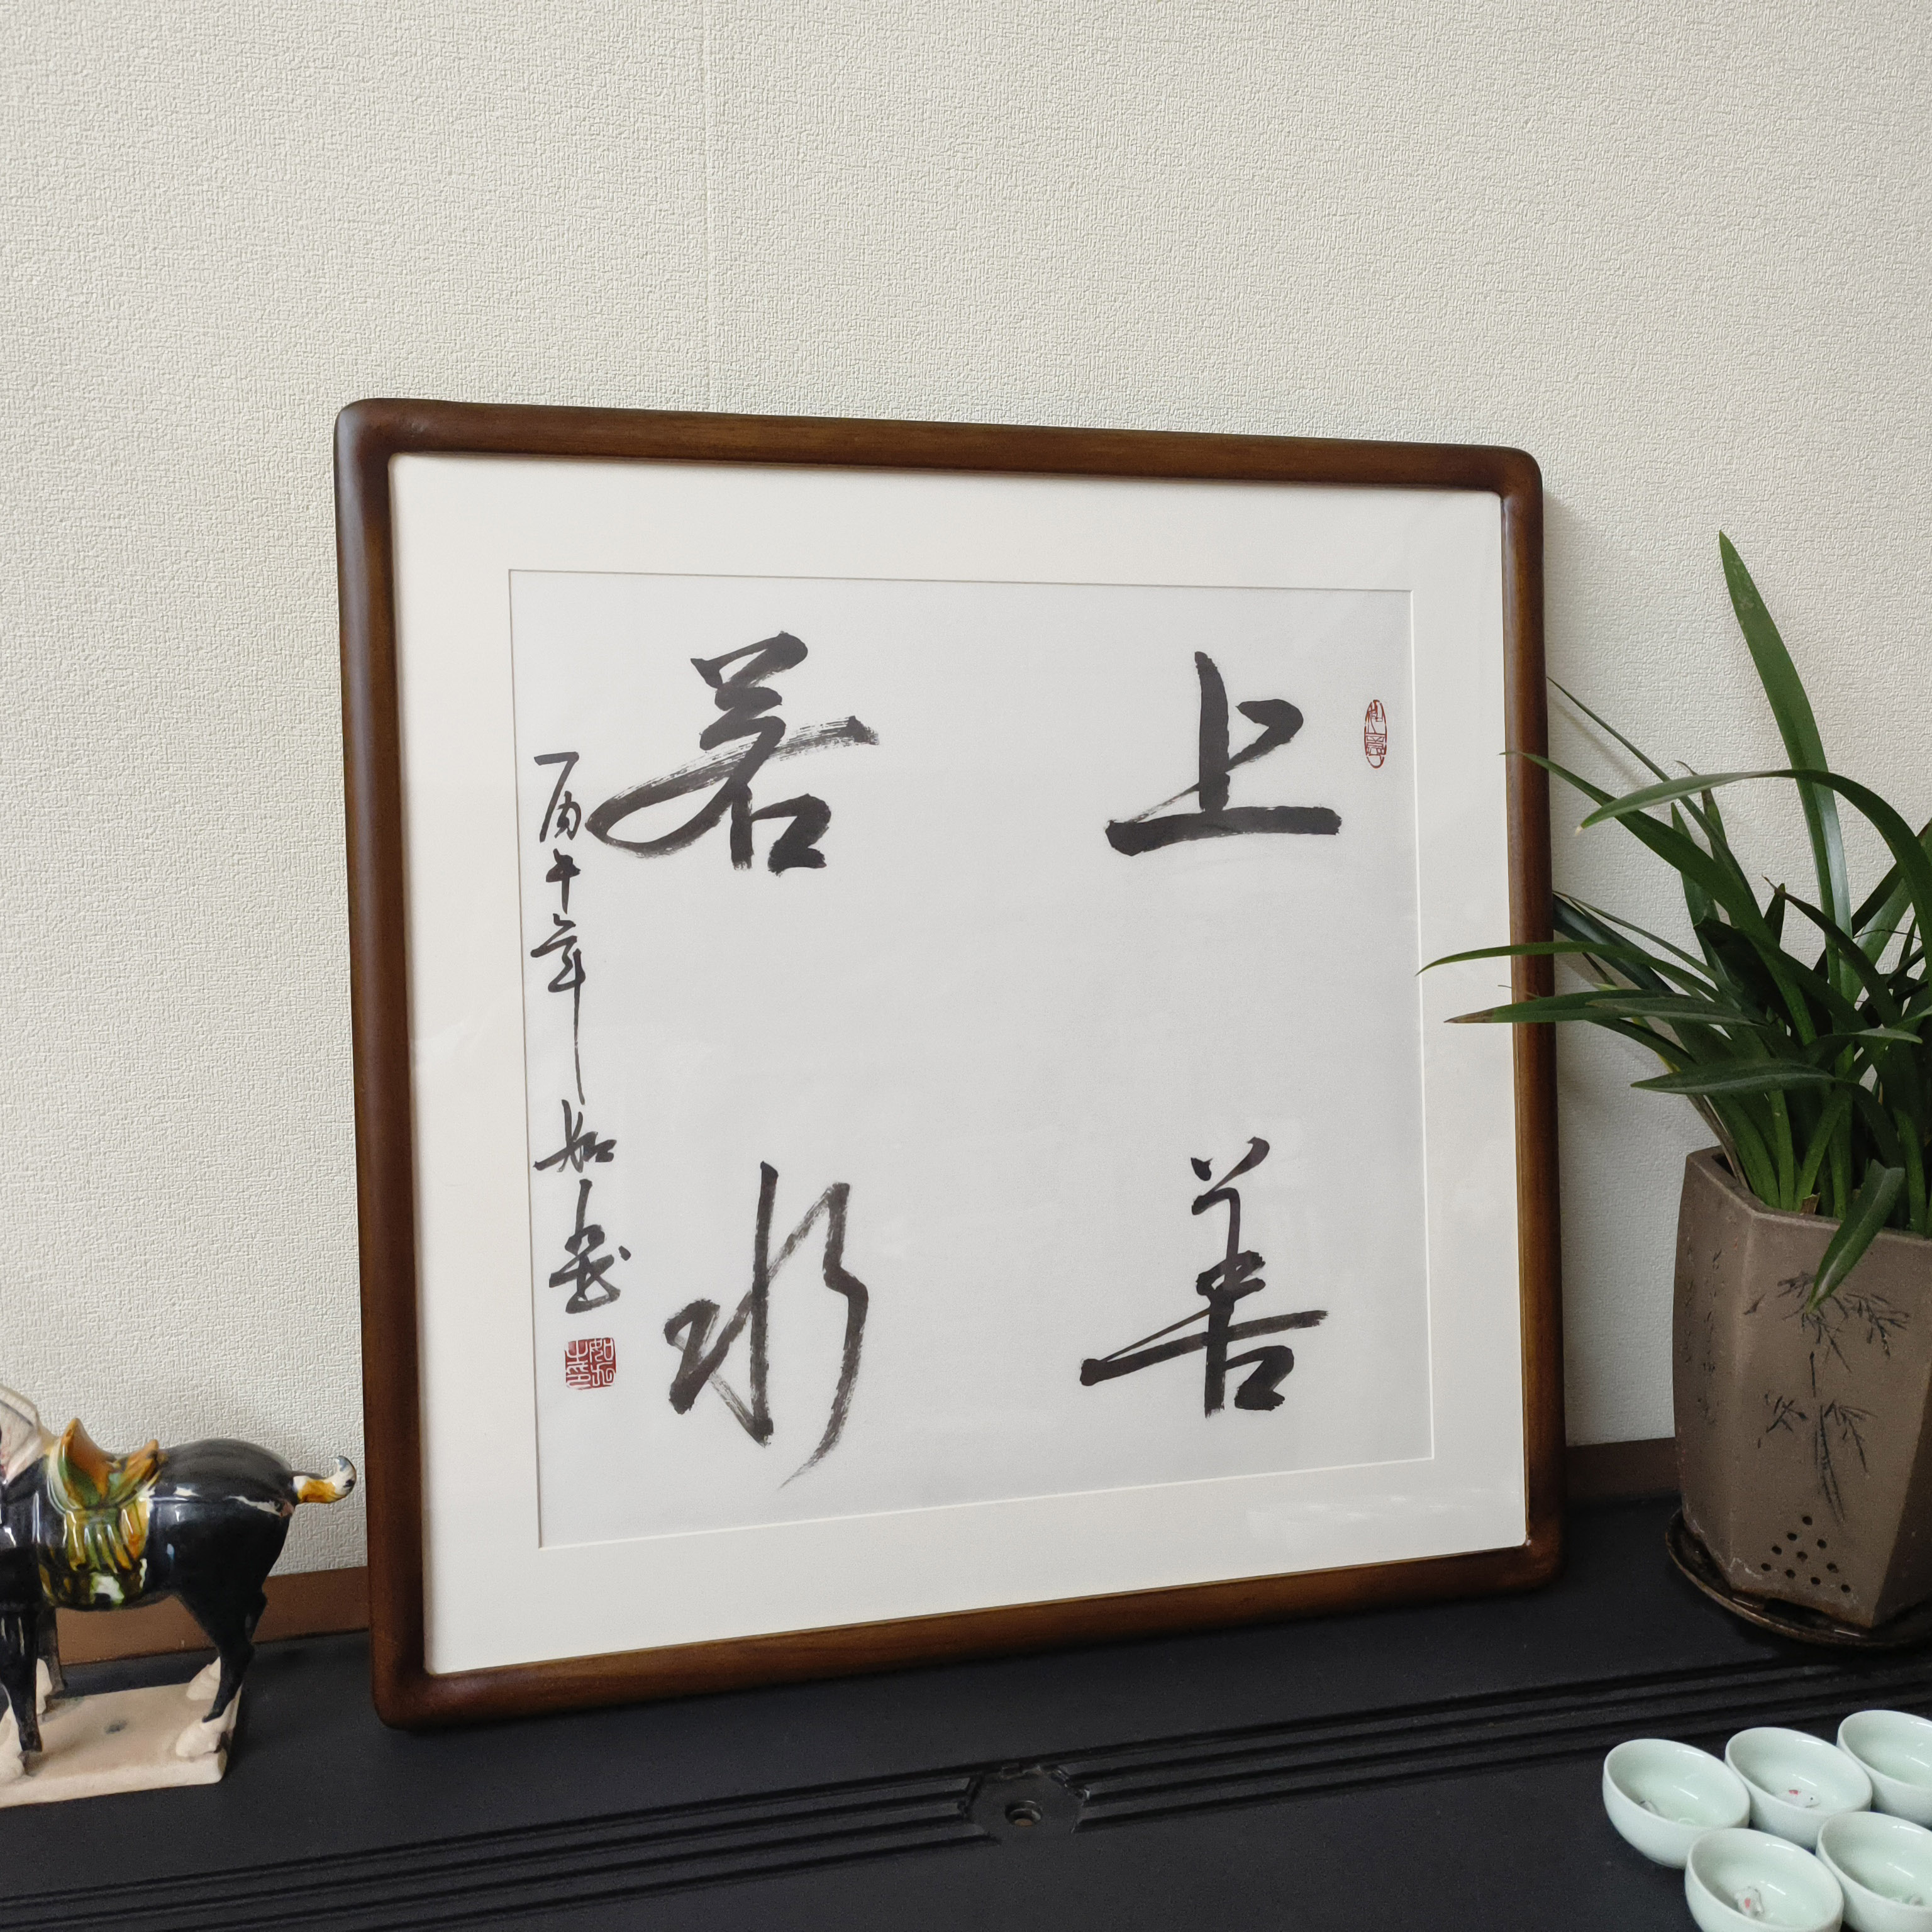 上善
若水
丙午年 如